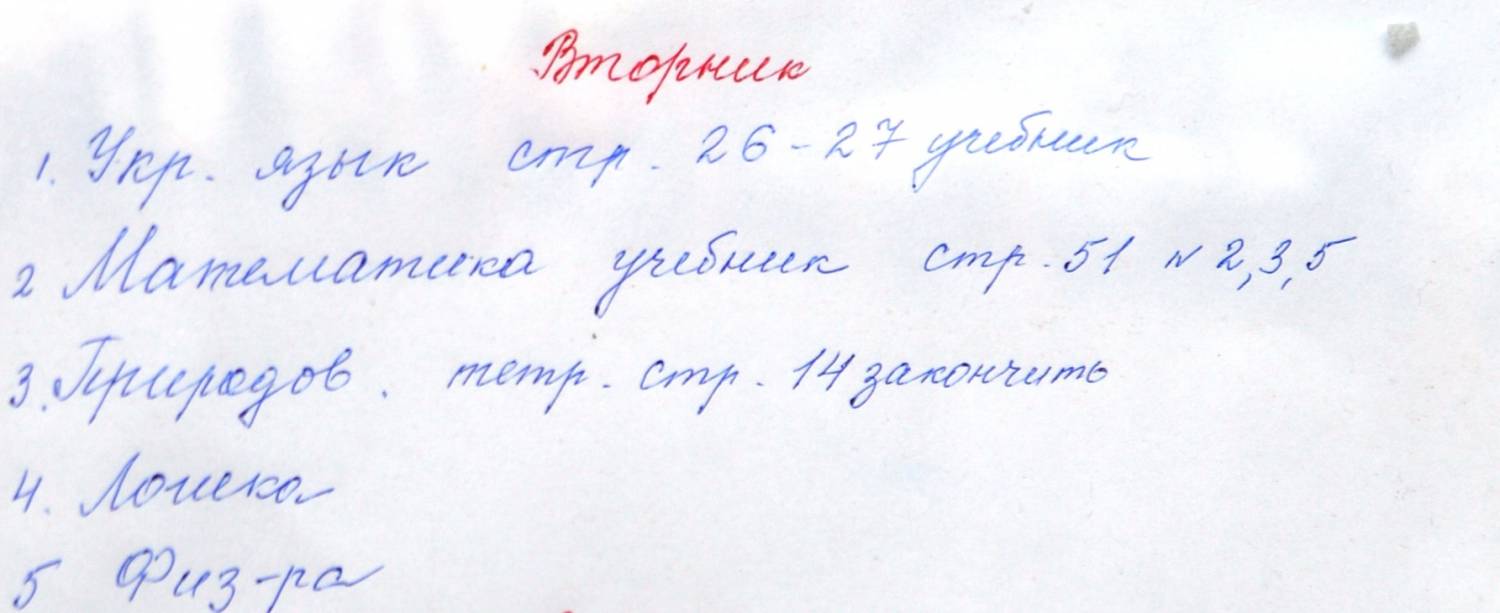 Вторник
1. Укр. язык стр. 26-27 учебник
2 Математика учебник стр. 51 № 2,3,5
3. Природов. тетр. стр. 14 закончить
4. Логика
5 Физ-ра